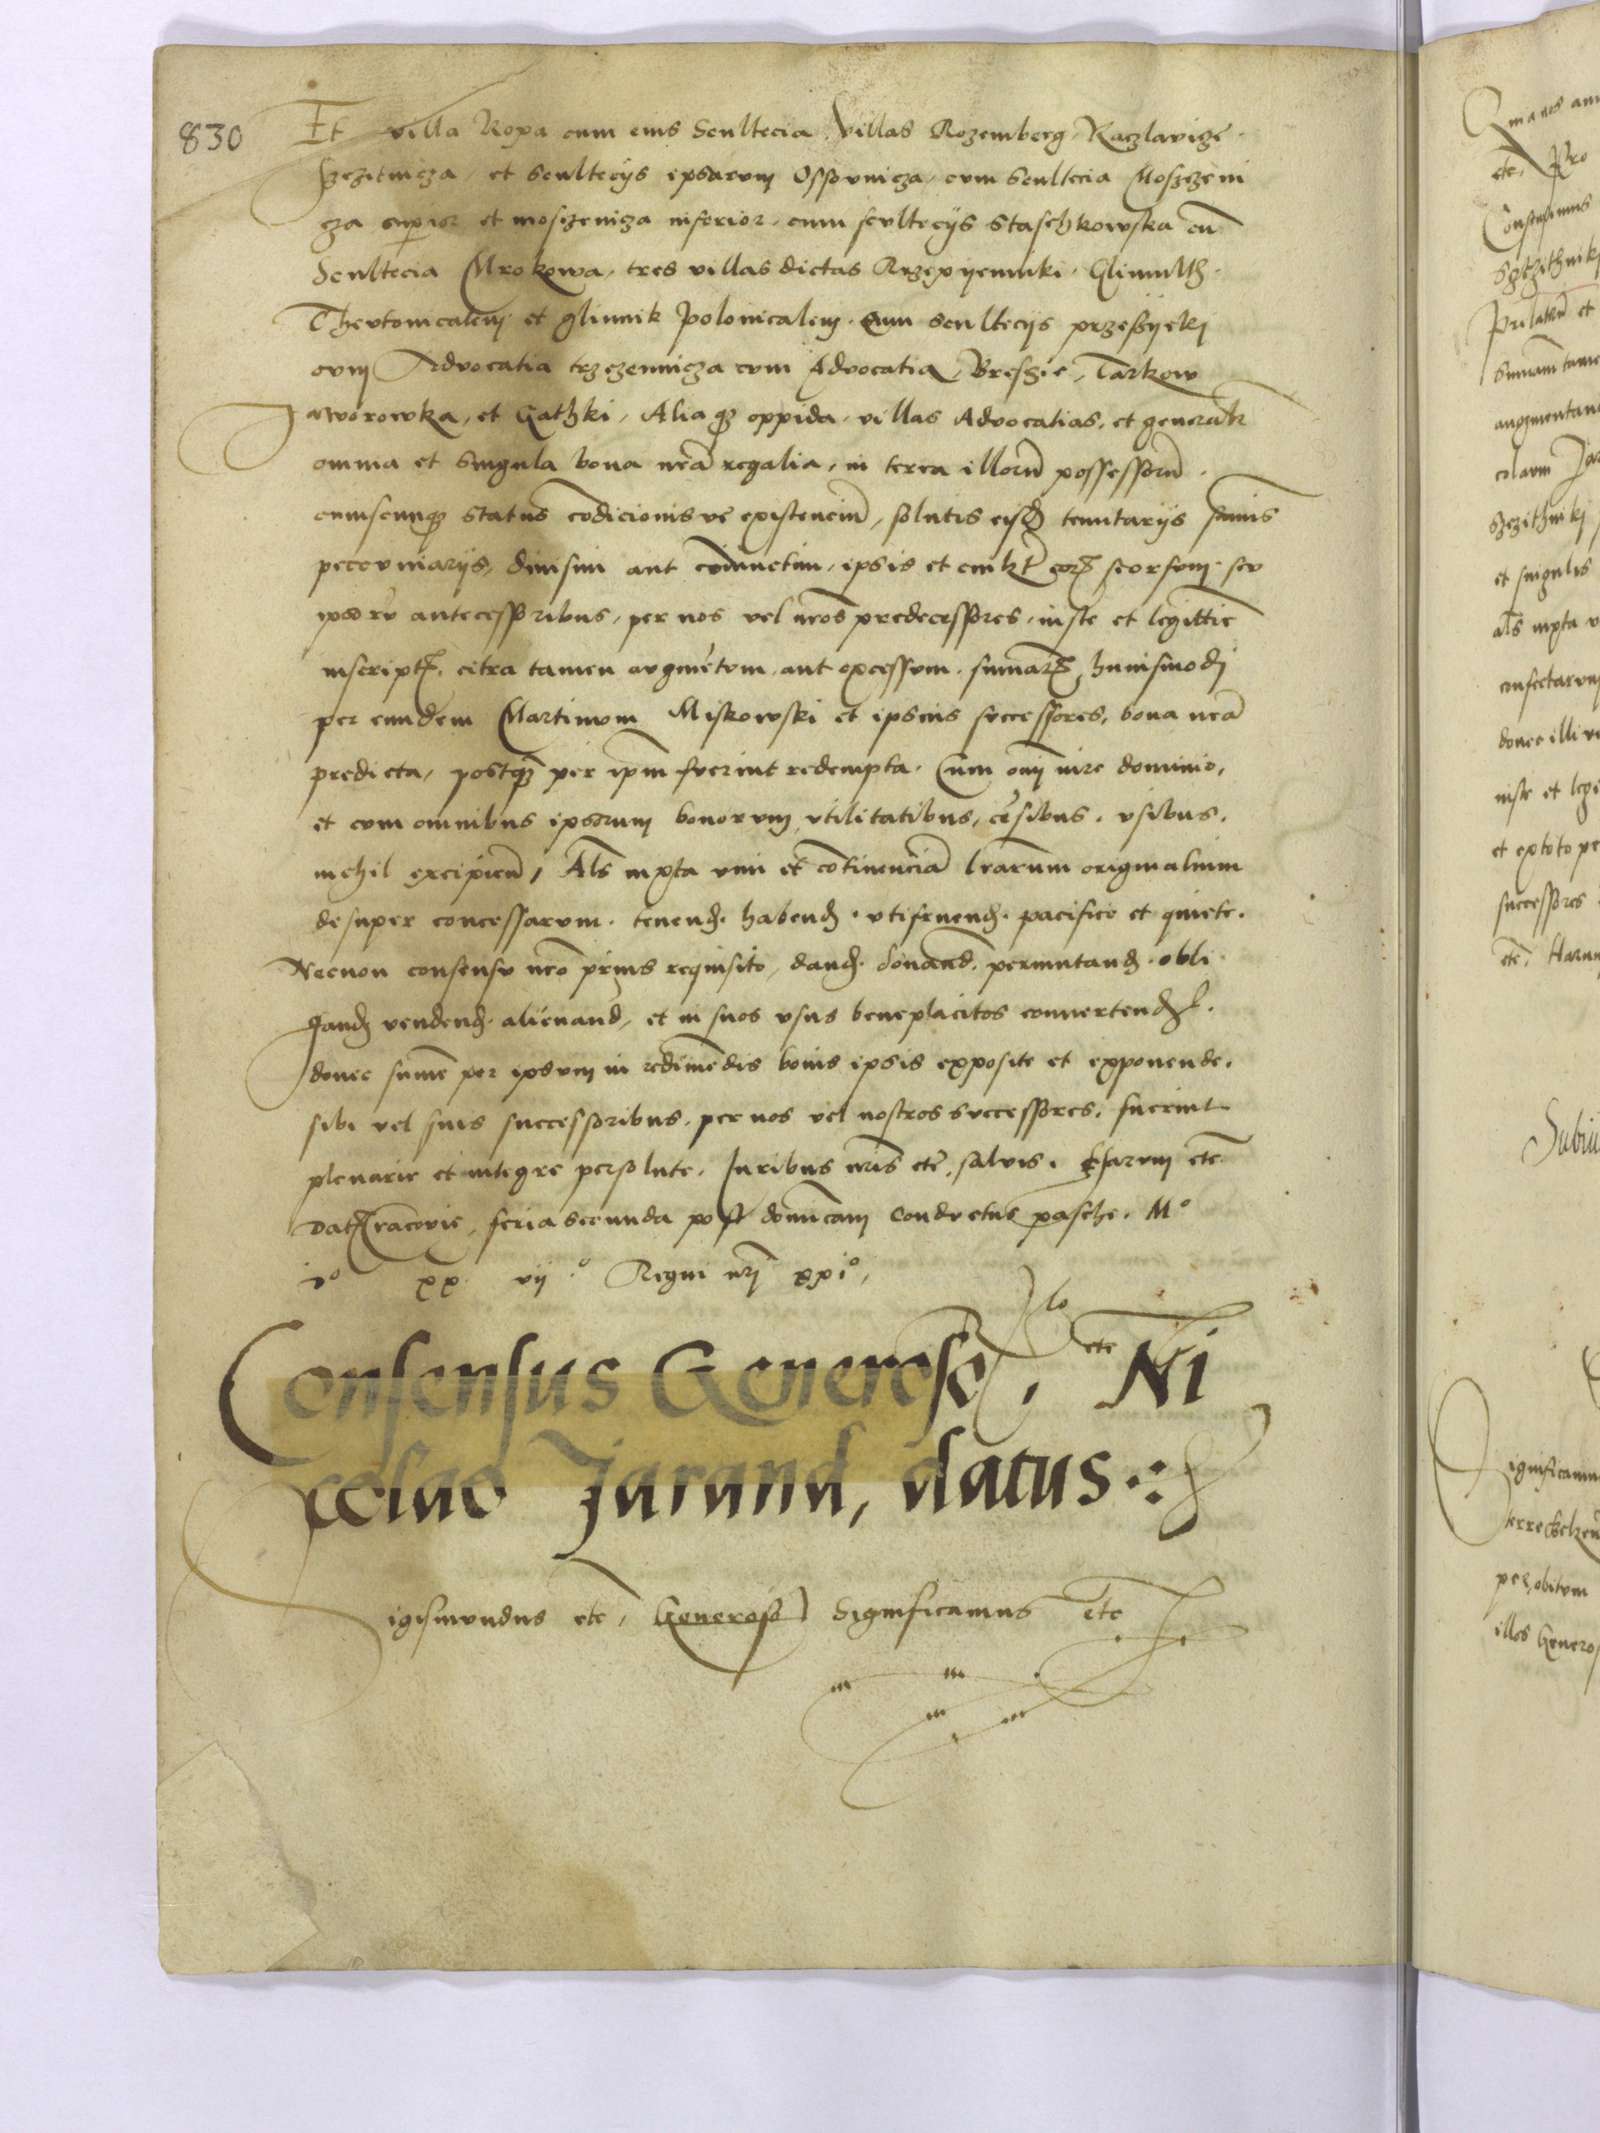 830
Et villa Ropa cum eius Scultecia, villas Rozemberg, Raczlavize
Szezitnicza, et scultecijs ipsarum Ossovnicza, cum scultecia Moszczeni
cza superior et moszenicza inferior, cum scultecijs Staschkowska cū
Scultecia Mrokowa, tres villas dictas Rzepyenniki, Glinnikh
Thevtonicalem et glinnik polonicalem, cum scultecijs przessyeki
cum Advocatia trzczennicza cum Advocatia, Bressie, Tarkow
Jaworowka, et Gathki, Aliaqz oppida, villas Advocatias, et generalr
omnia et singula bona nrā regalia, in terra illorū possessorū
cuiuscunqz status cōdicionis ve existenciū, solutis eisdē tenutarijs sūmis
pecuniarijs, diuisim aut coniunctim, ipsis et cuilzt eorz seorsum seu
ipsorū antecessoribus, per nos vel nr̄os predecessores, iuste et legittīe
inscriptz, citra tamen augmētum, aut excessum, summarz huiusmodj
per eundem Martinum Miskowski et ipsius successores, bona nrā
predicta, postqz per ipm̄ fuerint redempta. Cum omj iure dominio,
et cum omnibus ipsorum bonorum vtilitatibus, cēsibus, vsibus,
nichil excipiend, Als iuxta vim et cōtinenciā lrārum originalium
desuper concessarum, tenend, habend, vtifruend, pacifice et quiete.
Necnon consensu nr̄o prius requisito, dand, donand, permutand, obli
gand vendend, alienand, et in suos vsus beneplacitos conuertend.
donec sūme per ipsum in redimēdis bonis ipsis exposite et exponende,
sibi vel suis successoribus, per nos vel nostros successores, fuerint
plenarie et integre persolute, Iuribus nr̄is etc, salvis, Harum etc
Dat Cracovie, feria secunda post dominicam Conductus pasche, Mo
vo xx vijo Regni nrj xxio,
Consensus Generoso, etc Ni
colao Jarand, datus
Sigismundus etc, Generoso Significamus etc
Quia nos
etc, Pro
Consensimus
Szczithnikj
Prelatū et
Summam tame
augmentand
colaum Jar
Szczithnikj
et singulis
als iuxta v
confectarum
donec illi ve
iuste et legi
et extoto pe
successores
etc, Harum
Significamu
terre Belzen
per obitum
illos Generos